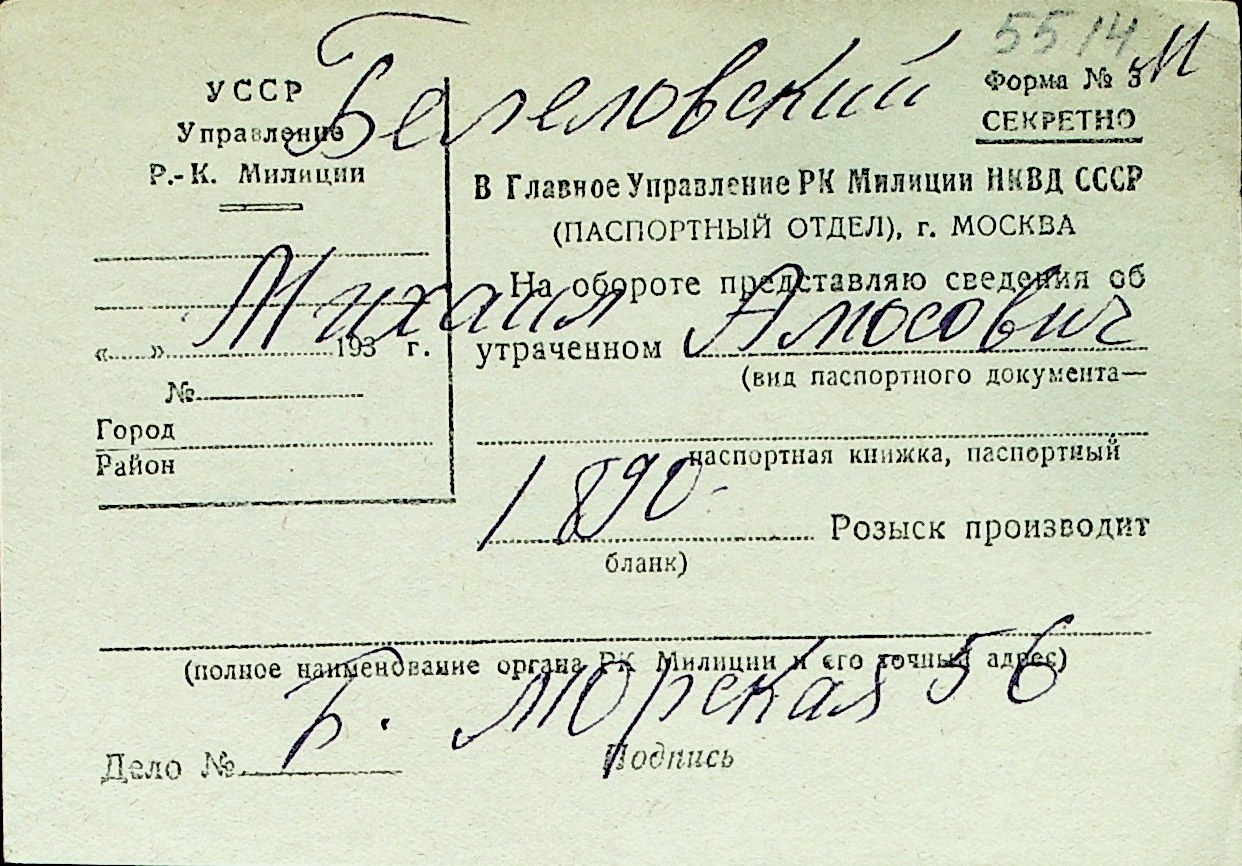 5514 М
Бегеловский
УССР
Управление
Р.-К. Милиции
« » 193 г.
№
Город
Район
Форма № 3
СЕКРЕТНО
В Главное Управление РК Милиции НКВД СССР
(ПАСПОРТНЫЙ ОТДЕЛ), г. МОСКВА
На обороте представляю сведения об
Михаил Амосович
утраченном
(вид паспортного документа—
паспортная книжка, паспортный
1890
Розыск производит
бланк)
(полное наименование органа РК Милиции и его точный адрес)
Б. Морская 56
Дело № Подпись